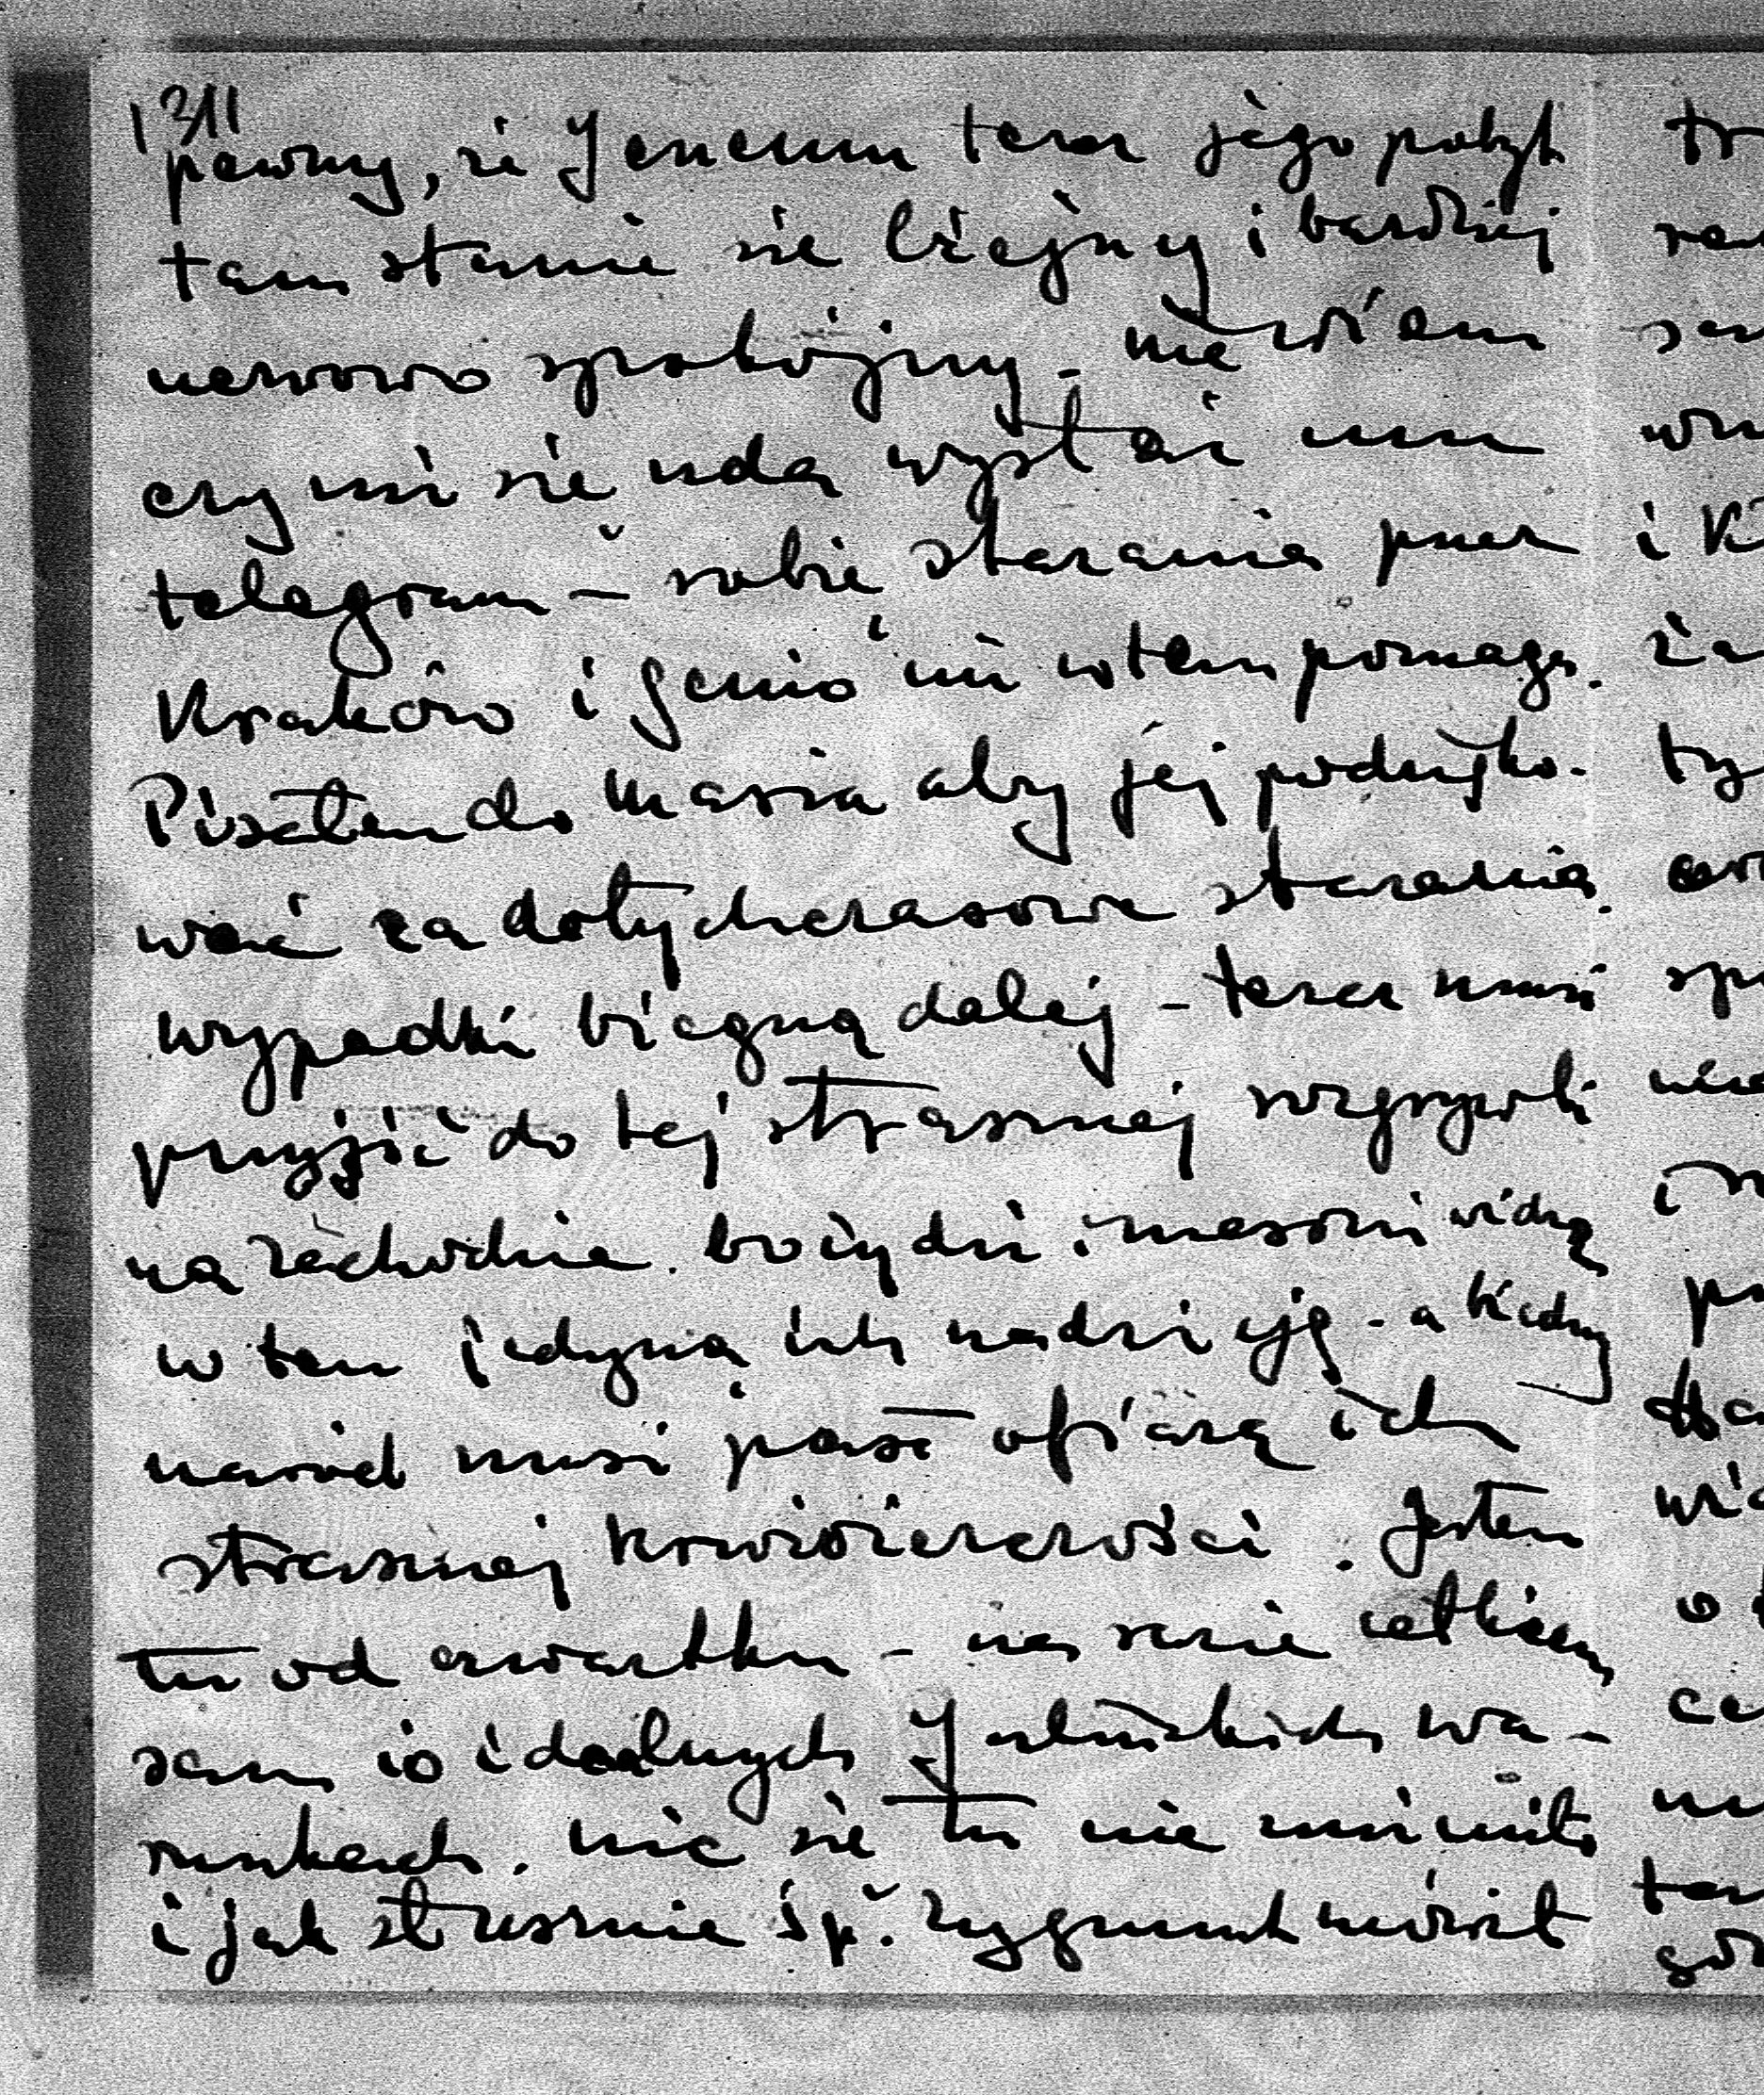 13/II
pewny, że Jeneum teraz jego pobyt
tam stanie się lżejszy i bardziej
nerwowo spokojny - nie wiem
czy mi się uda wysłać mu
telegram - robię starania przez
Kraków i Genio mi w tem pomaga.
Pisałem do Maria aby jej podzięko-
wać za dotychczasowe starania.
wypadki biegną dalej - teraz musi
przyjść do tej strasznej rozgrywki
na zachodzie. bo żydzi i masoni widzą
w tem jedyną ich nadzieję - a biedny
naród musi paść ofiarą ich
strasznej krwiożerczości. Jestem
tu od czwartku - na razie całkiem
sam io idealnych Jabłońskich wa-
runkach. nic się tu nie zmieniło
i jak strasznie ś.p. Zygmunt mówił
tr
i K
ża
ty
spr
i
pr
o
ce